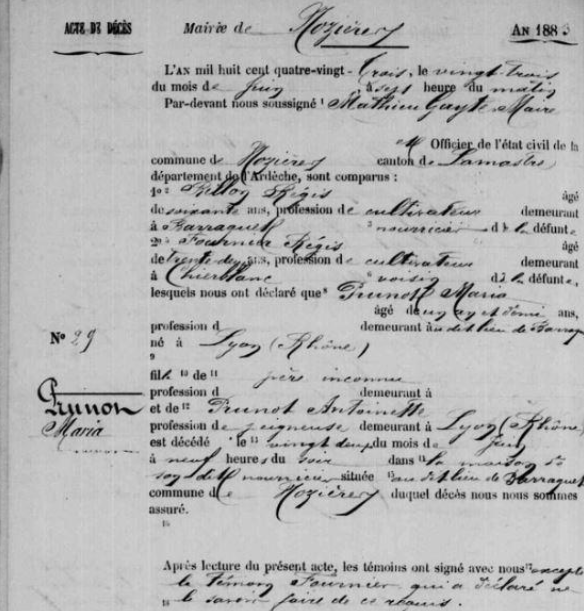 ACTE DE DÉCÈS Mairie de Nozières AN 1883
L'AN mil huit cent quatre-vingt-trois, le vingt trois
du mois de juin à sept heure du matin
Par-devant nous soussigné ¹ Mathieu Gayte Maire
Officier de l'état civil de la
commune de Nozières canton de Lamastre
département de l'Ardèche, sont comparus :
1º ² Régis âgé
de soixante ans, profession de cultivateur demeurant
à Barraquet ³ nourricier d e la défunte
2º ⁴ Fournier Régis âgé
de trente deux ans, profession de cultivateur demeurant
à Chierblanc ⁶ voisin d e la défunte,
lesquels nous ont déclaré que ⁸ Prunot Maria
âgé de un an et demi ans,
profession d demeurant au dit lieu de Barraq
Nº 29
né à Lyon (Rhône)
9
fille ¹⁰ de ¹¹ père inconnu
profession d demeurant à
Prunot
Maria
et de ¹² Prunot Antoinette
profession de peigneuse demeurant à Lyon (Rhône)
est décédé le ¹³ vingt deux du mois de juin
à neuf heures du soir dans ¹⁴ la maison de
son dit nourricier située ¹⁵ au dit lieu de Barraquet
commune de Nozières duquel décès nous nous sommes
assuré.
16
Après lecture du présent acte, les témoins ont signé avec nous ¹⁷ excepté
le témoin Fournier qui a déclaré ne
18 le savoir faire de ce requis